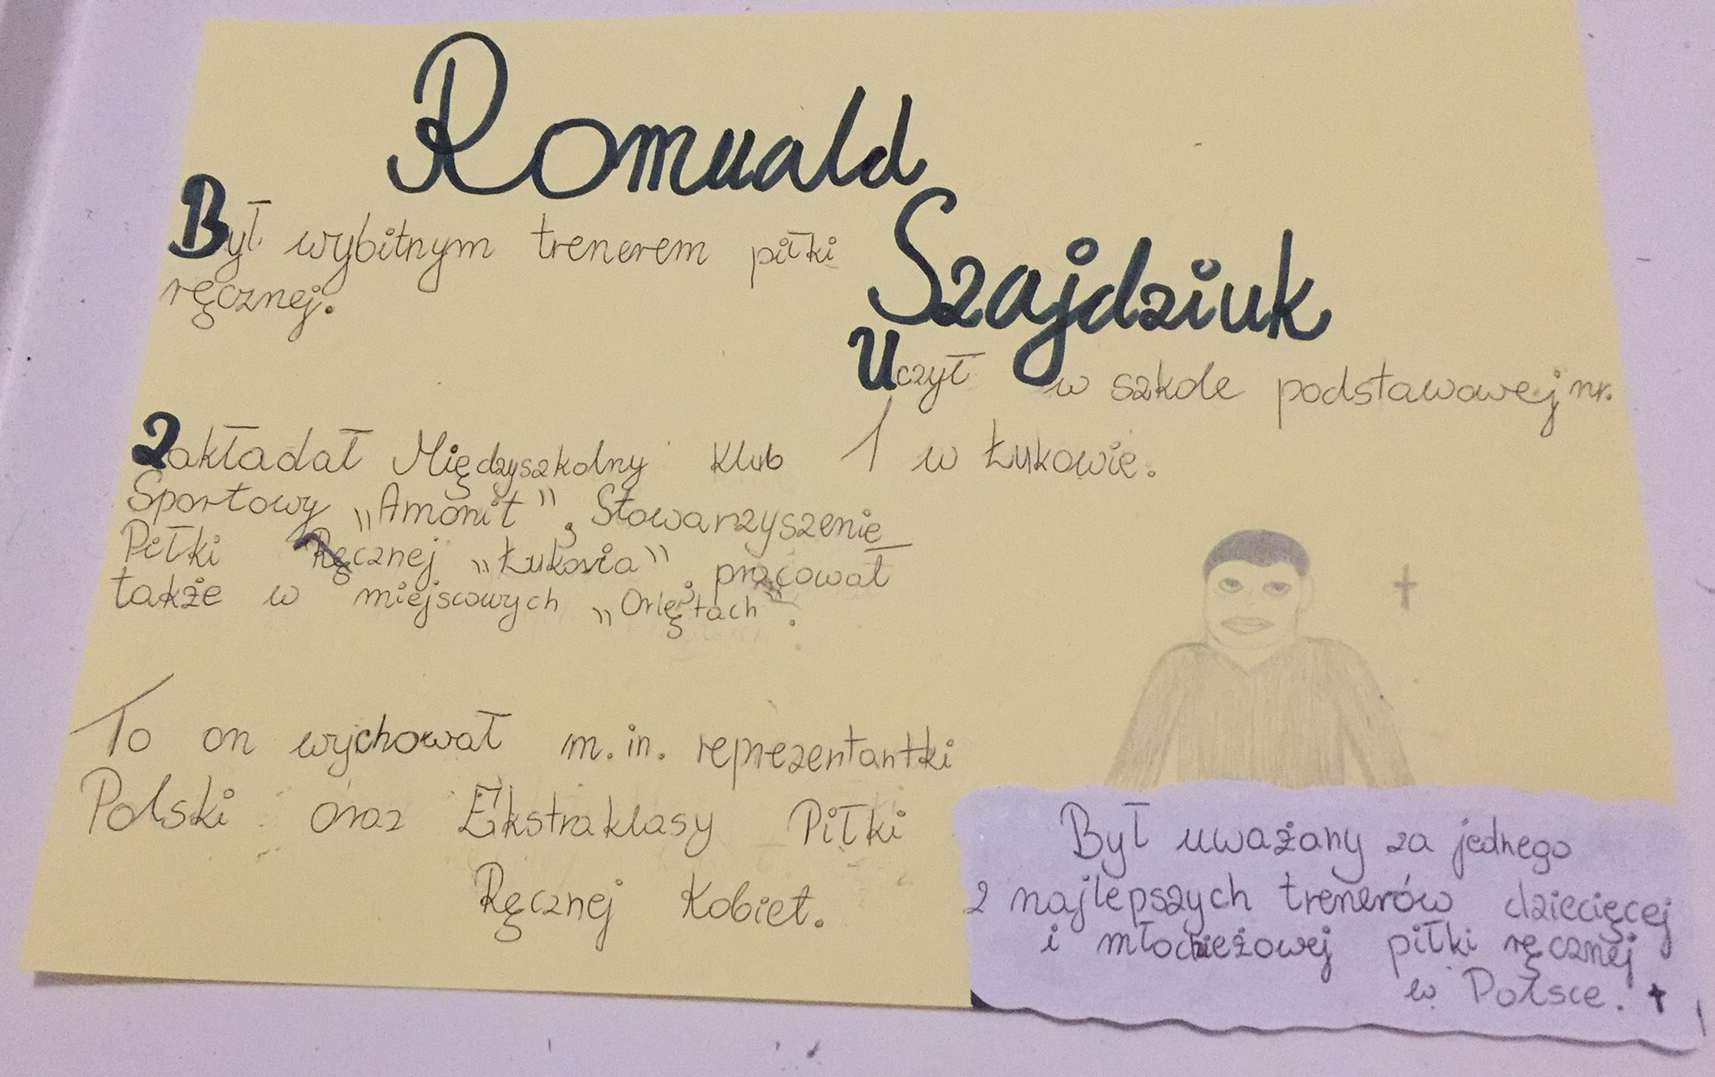 Romuald
Szajdziuk
Był wybitnym trenerem piłki
ręcznej.
Uczył w szkole podstawowej nr.
1 w Łukowie.
Zakładał Międzyszkolny Klub
Sportowy „Amonit”, Stowarzyszenie
Piłki Ręcznej „Łukovia” pracował
także w miejscowych „Orlętach”.
To on wychował m.in. reprezentantki
Polski oraz Ekstraklasy Piłki
Ręcznej Kobiet.
Był uważany za jednego
z najlepszych trenerów dziecięcej
i młodzieżowej piłki ręcznej
w Polsce. ✝